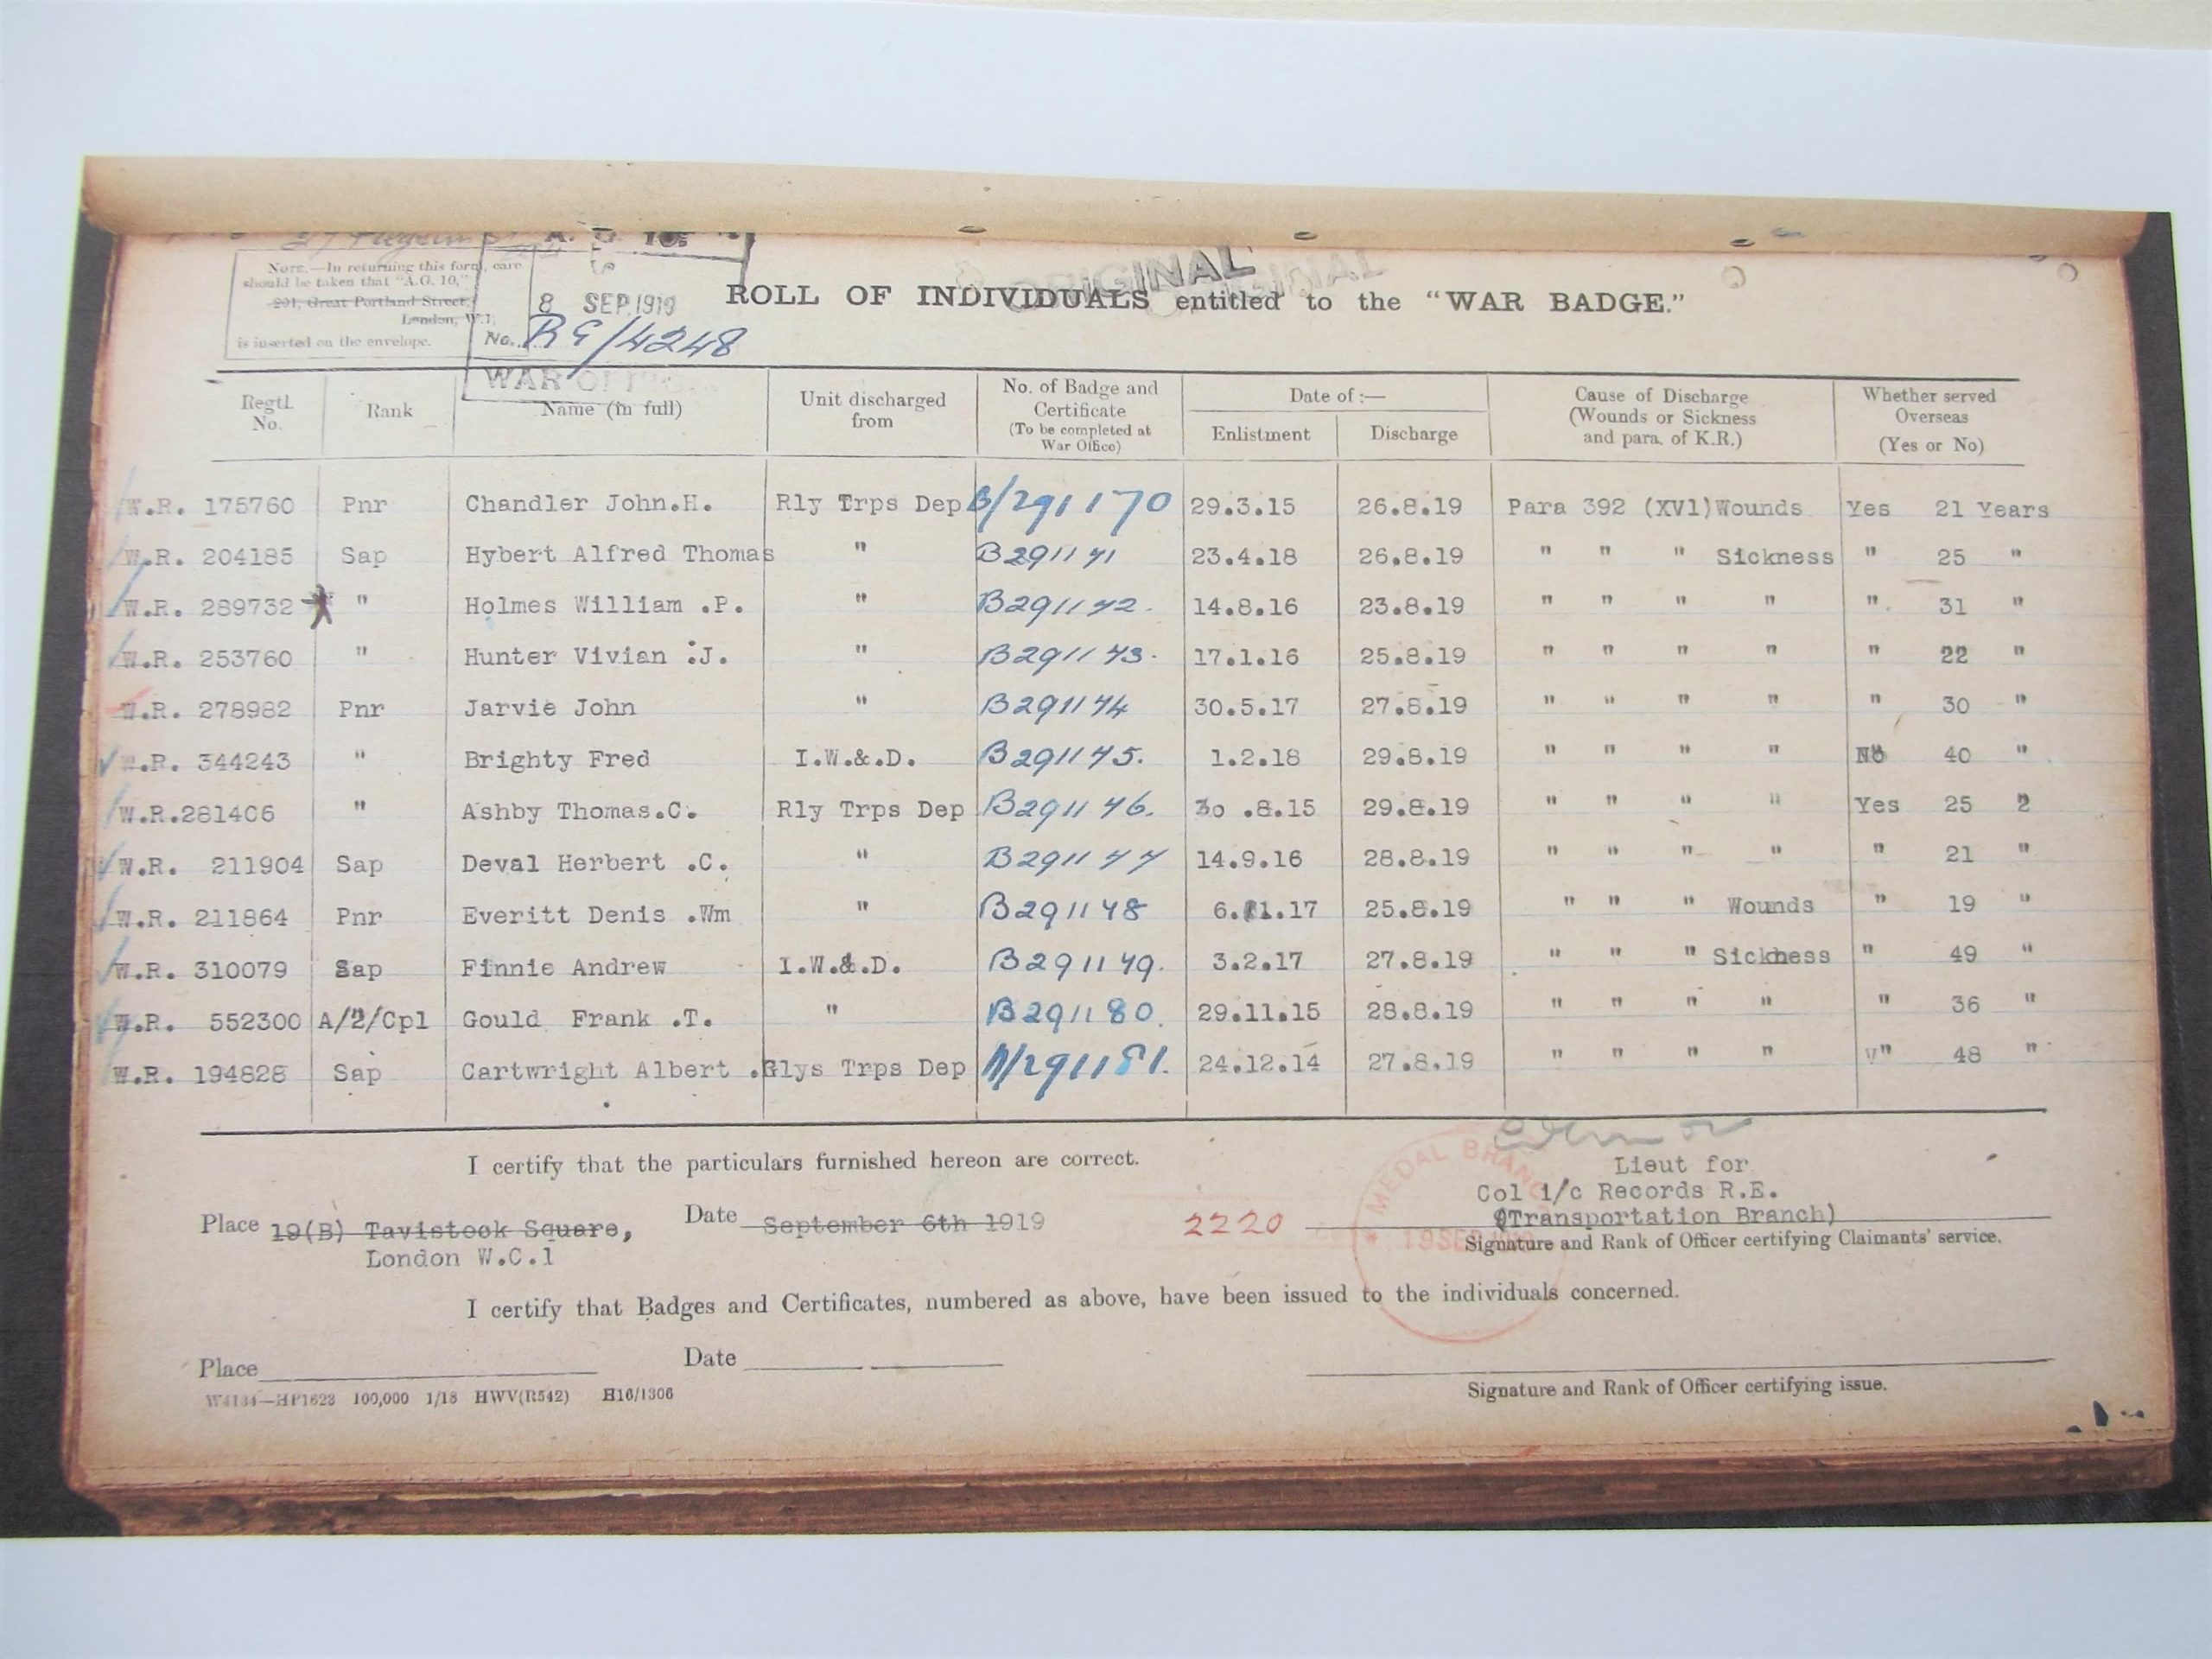 A. G. 10.
NOTE.—In returning this form, care
should be taken that "A.G. 10,"
291, Great Portland Street,
London, W.1,
is inserted on the envelope.
8 SEP 1919
No. RE/4248
WAR OFFICE
ORIGINAL
ORIGINAL
ROLL OF INDIVIDUALS entitled to the "WAR BADGE."
Regtl. No. | Rank | Name (in full) | Unit discharged from | No. of Badge and Certificate (To be completed at War Office) | Date of :— Enlistment | Discharge | Cause of Discharge (Wounds or Sickness and para. of K.R.) | Whether served Overseas (Yes or No)
W.R. 175760 Pnr Chandler John.H. Rly Trps Dep B/291170 29.3.15 26.8.19 Para 392 (XVl)Wounds Yes 21 Years
W.R. 204185 Sap Hybert Alfred Thomas " B291171 23.4.18 26.8.19 " " " Sickness " 25 "
W.R. 289732 " Holmes William .P. " B291172. 14.8.16 23.8.19 " " " " " 31 "
W.R. 253760 " Hunter Vivian :J. " B291173. 17.1.16 25.8.19 " " " " " 22 "
W.R. 278982 Pnr Jarvie John " B291174 30.5.17 27.8.19 " " " " " 30 "
W.R. 344243 " Brighty Fred I.W.&.D. B291175. 1.2.18 29.8.19 " " " " No 40 "
W.R.281406 " Ashby Thomas.C. Rly Trps Dep B291176. 30 .8.15 29.8.19 " " " " Yes 25 2
W.R. 211904 Sap Deval Herbert .C. " B291177 14.9.16 28.8.19 " " " " " 21 "
W.R. 211864 Pnr Everitt Denis .Wm " B291178 6.11.17 25.8.19 " " " Wounds " 19 "
W.R. 310079 Sap Finnie Andrew I.W.&.D. B291179. 3.2.17 27.8.19 " " " Sickness " 49 "
W.R. 552300 A/2/Cpl Gould Frank .T. " B291180. 29.11.15 28.8.19 " " " " " 36 "
W.R. 194828 Sap Cartwright Albert . Rlys Trps Dep B/291181. 24.12.14 27.8.19 " " " " " 48 "
I certify that the particulars furnished hereon are correct.
Lieut for
Col i/c Records R.E.
(Transportation Branch)
Place 19(B) Tavistock Square, Date September 6th 1919 2220
London W.C.1
Signature and Rank of Officer certifying Claimants' service.
MEDAL BRANCH
19 SEP
I certify that Badges and Certificates, numbered as above, have been issued to the individuals concerned.
Place Date
W4134—HP1623 100,000 1/18 HWV(R542) H16/1306
Signature and Rank of Officer certifying issue.